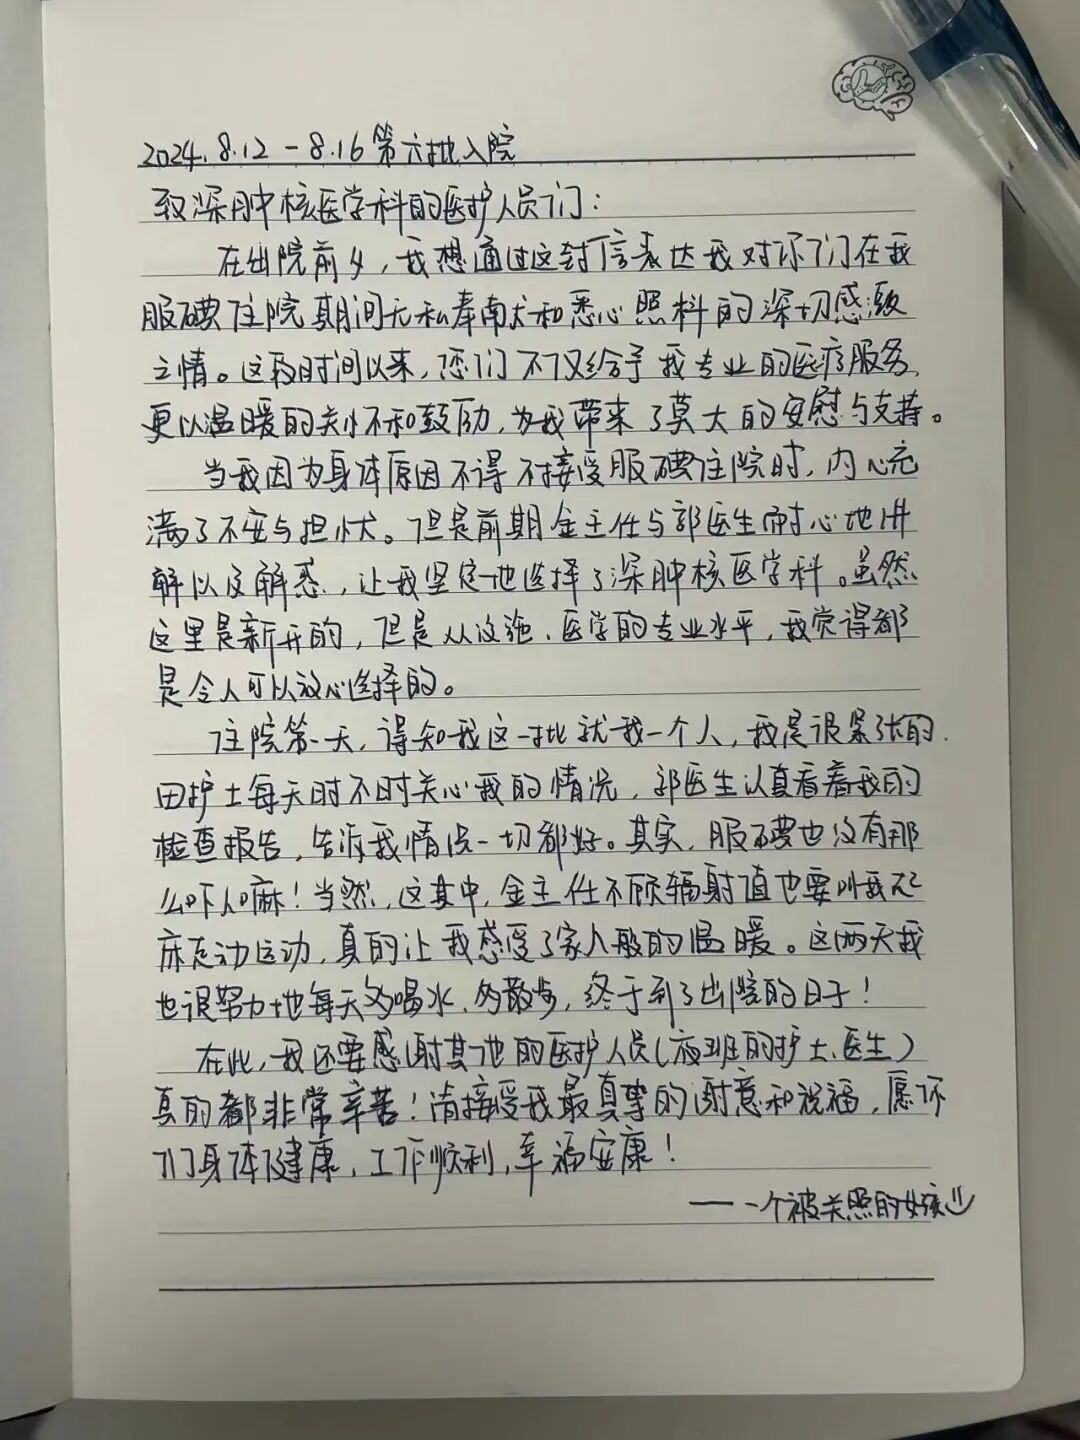 2024.8.12－8.16 第六批入院
致深肿核医学科的医护人员们：
在出院前夕，我想通过这封信表达我对你们在我
服碘住院期间无私奉献和悉心照料的深切感激
之情。这段时间以来，您们不仅给予我专业的医疗服务，
更以温暖的关怀和鼓励，为我带来了莫大的安慰与支持。
当我因为身体原因不得不接受服碘住院时，内心充
满了不安与担忧。但是前期金主任与郭医生耐心地讲
解以及解惑，让我坚定地选择了深肿核医学科。虽然
这里是新开的，但是从设施、医学的专业水平，我觉得都
是令人可以放心选择的。
住院第一天，得知我这一批就我一个人，我是很紧张的，
田护士每天时不时关心我的情况，郭医生认真看着我的
检查报告，告诉我情况一切都好。其实，服碘也没有那
么吓人嘛！当然，这其中，金主任不顾辐射值也要叫我下
床走动运动，真的让我感受了家人般的温暖。这两天我
也很努力地每天多喝水、多散步，终于到了出院的日子！
在此，我还要感谢其他的医护人员（夜班的护士、医生）
真的都非常辛苦！请接受我最真挚的谢意和祝福，愿你
们身体健康，工作顺利，幸福安康！
——一个被关照的女孩